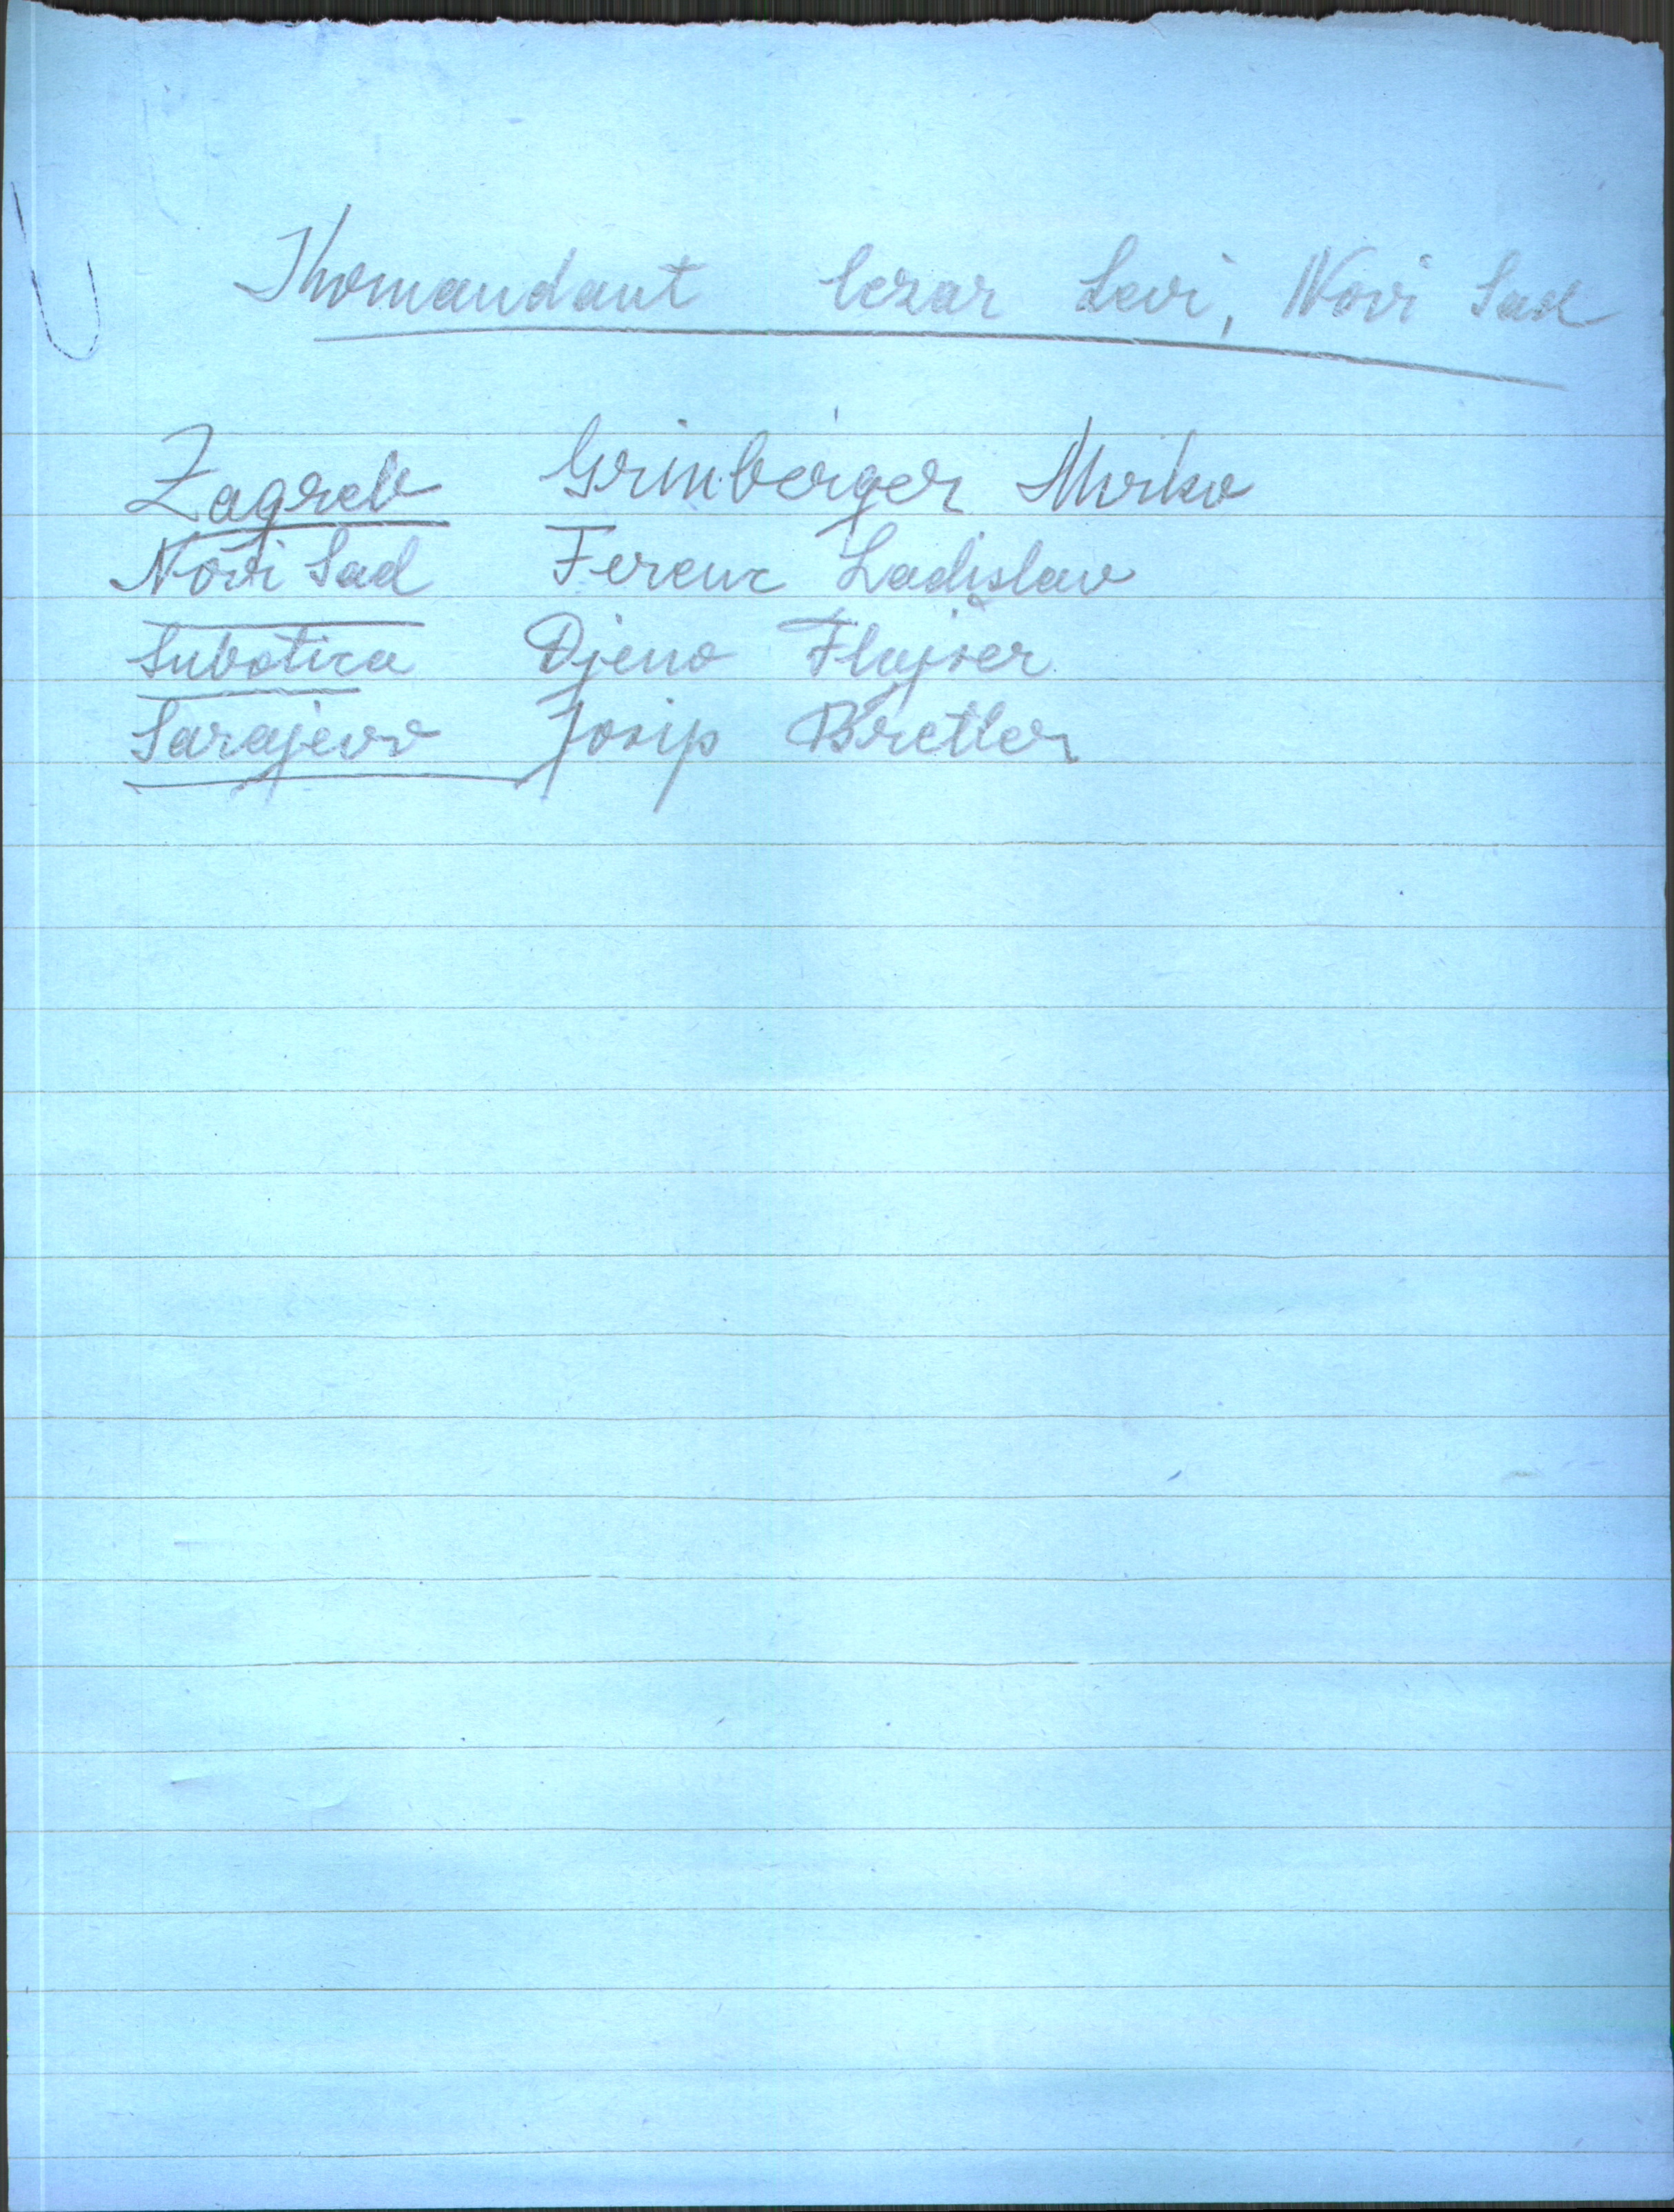 Komandant Cezar Levi, Novi Sad
Zagreb Grinberger Mirko
Novi Sad Ferenc Ladislav
Subotica Djeno Flajšer
Sarajevo Josip Bretler